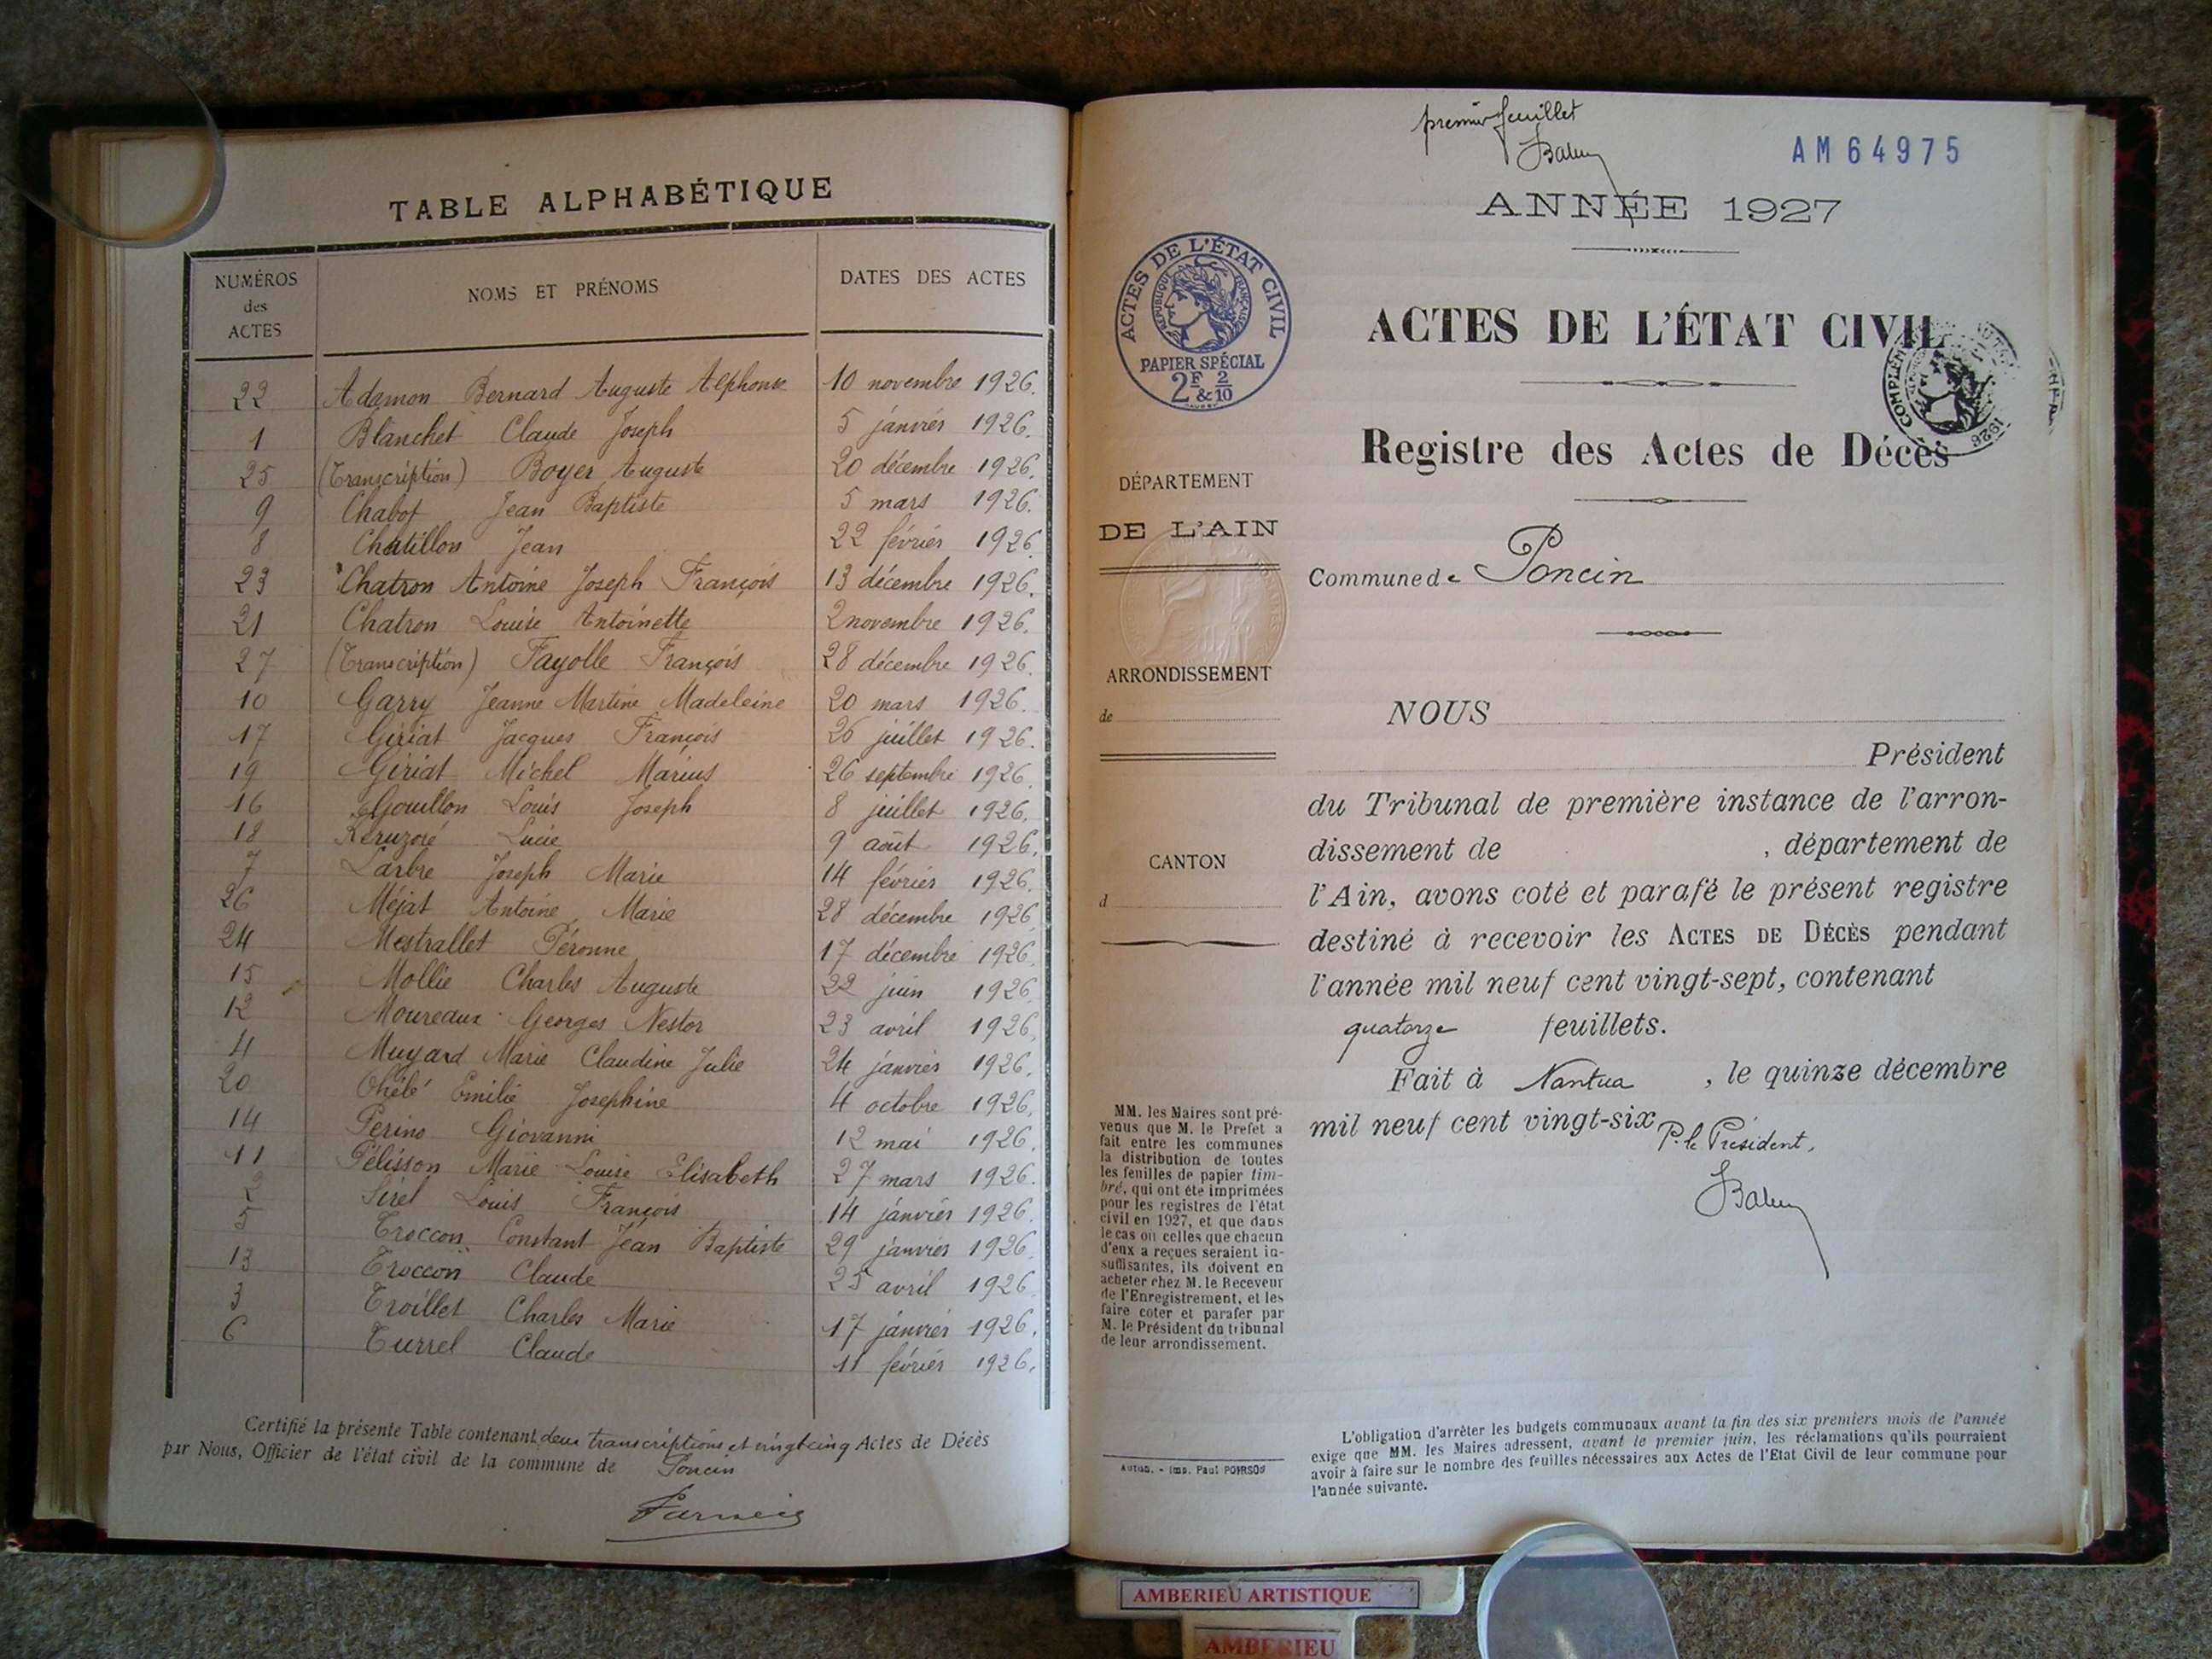 TABLE ALPHABÉTIQUE
NUMÉROS des ACTES NOMS ET PRÉNOMS DATES DES ACTES
22 Adamon Bernard Auguste Alphonse 10 novembre 1926.
1 Blanchet Claude Joseph 5 janvier 1926.
25 (Transcription) Boyer Auguste 20 décembre 1926.
9 Chabot Jean Baptiste 5 mars 1926.
8 Chatillon Jean 22 février 1926.
23 Chatron Antoine Joseph François 13 décembre 1926.
21 Chatron Louise Antoinette 2 novembre 1926.
27 (Transcription) Fayolle François 28 décembre 1926.
10 Garry Jeanne Martine Madeleine 20 mars 1926.
17 Giriat Jacques François 26 juillet 1926.
19 Giriat Michel Marius 26 septembre 1926.
16 Gouillon Louis Joseph 8 juillet 1926.
18 Kéruzoré Lucie 9 août 1926.
7 Larbre Joseph Marie 14 février 1926.
26 Méjat Antoine Marie 28 décembre 1926
24 Mestrallet Péronne 17 décembre 1926.
15 Mollie Charles Auguste 22 juin 1926.
12 Moureaux Georges Nestor 23 avril 1926.
4 Mugard Marie Claudine Julie 24 janvier 1926.
20 Ohélé Emilie Josephine 4 octobre 1926.
14 Perino Giovanni 12 mai 1926.
11 Pélisson Marie Louise Elisabeth 27 mars 1926.
2 Sirel Louis François 14 janvier 1926.
5 Troccon Constant Jean Baptiste 29 janvier 1926.
13 Troccon Claude 25 avril 1926.
3 Troillet Charles Marie 17 janvier 1926.
6 Turrel Claude 11 février 1926.
Certifié la présente Table contenant deux transcriptions et vingt cinq Actes de Décès
par Nous, Officier de l'état civil de la commune de Poncin
premier feuillet
AM64975
ANNÉE 1927
ACTES DE L'ÉTAT CIVIL
RÉPUBLIQUE FRANÇAISE
PAPIER SPÉCIAL
2F & 2/10
ACTES DE L'ÉTAT CIVIL
Registre des Actes de Décès
DÉPARTEMENT
DE L'AIN
Commune de Poncin
ARRONDISSEMENT
de
NOUS
Président
du Tribunal de première instance de l'arron-
dissement de , département de
CANTON
d
l'Ain, avons coté et parafé le présent registre
destiné à recevoir les ACTES DE DÉCÈS pendant
l'année mil neuf cent vingt-sept, contenant
quatorze feuillets.
Fait à Nantua , le quinze décembre
mil neuf cent vingt-six
P. le Président,
MM. les Maires sont pré-
venus que M. le Préfet a
fait entre les communes
la distribution de toutes
les feuilles de papier tim-
bré, qui ont été imprimées
pour les registres de l'état
civil en 1927, et que dans
le cas où celles que chacun
d'eux a reçues seraient in-
suffisantes, ils doivent en
acheter chez M. le Receveur
de l'Enregistrement, et les
faire coter et parafer par
M. le Président du tribunal
de leur arrondissement.
Autun. - Imp. Paul POIRSON
L'obligation d'arrêter les budgets communaux avant la fin des six premiers mois de l'année
exige que MM. les Maires adressent, avant le premier juin, les réclamations qu'ils pourraient
avoir à faire sur le nombre des feuilles nécessaires aux Actes de l'Etat Civil de leur commune pour
l'année suivante.
AMBERIEU ARTISTIQUE
AMBERIEU